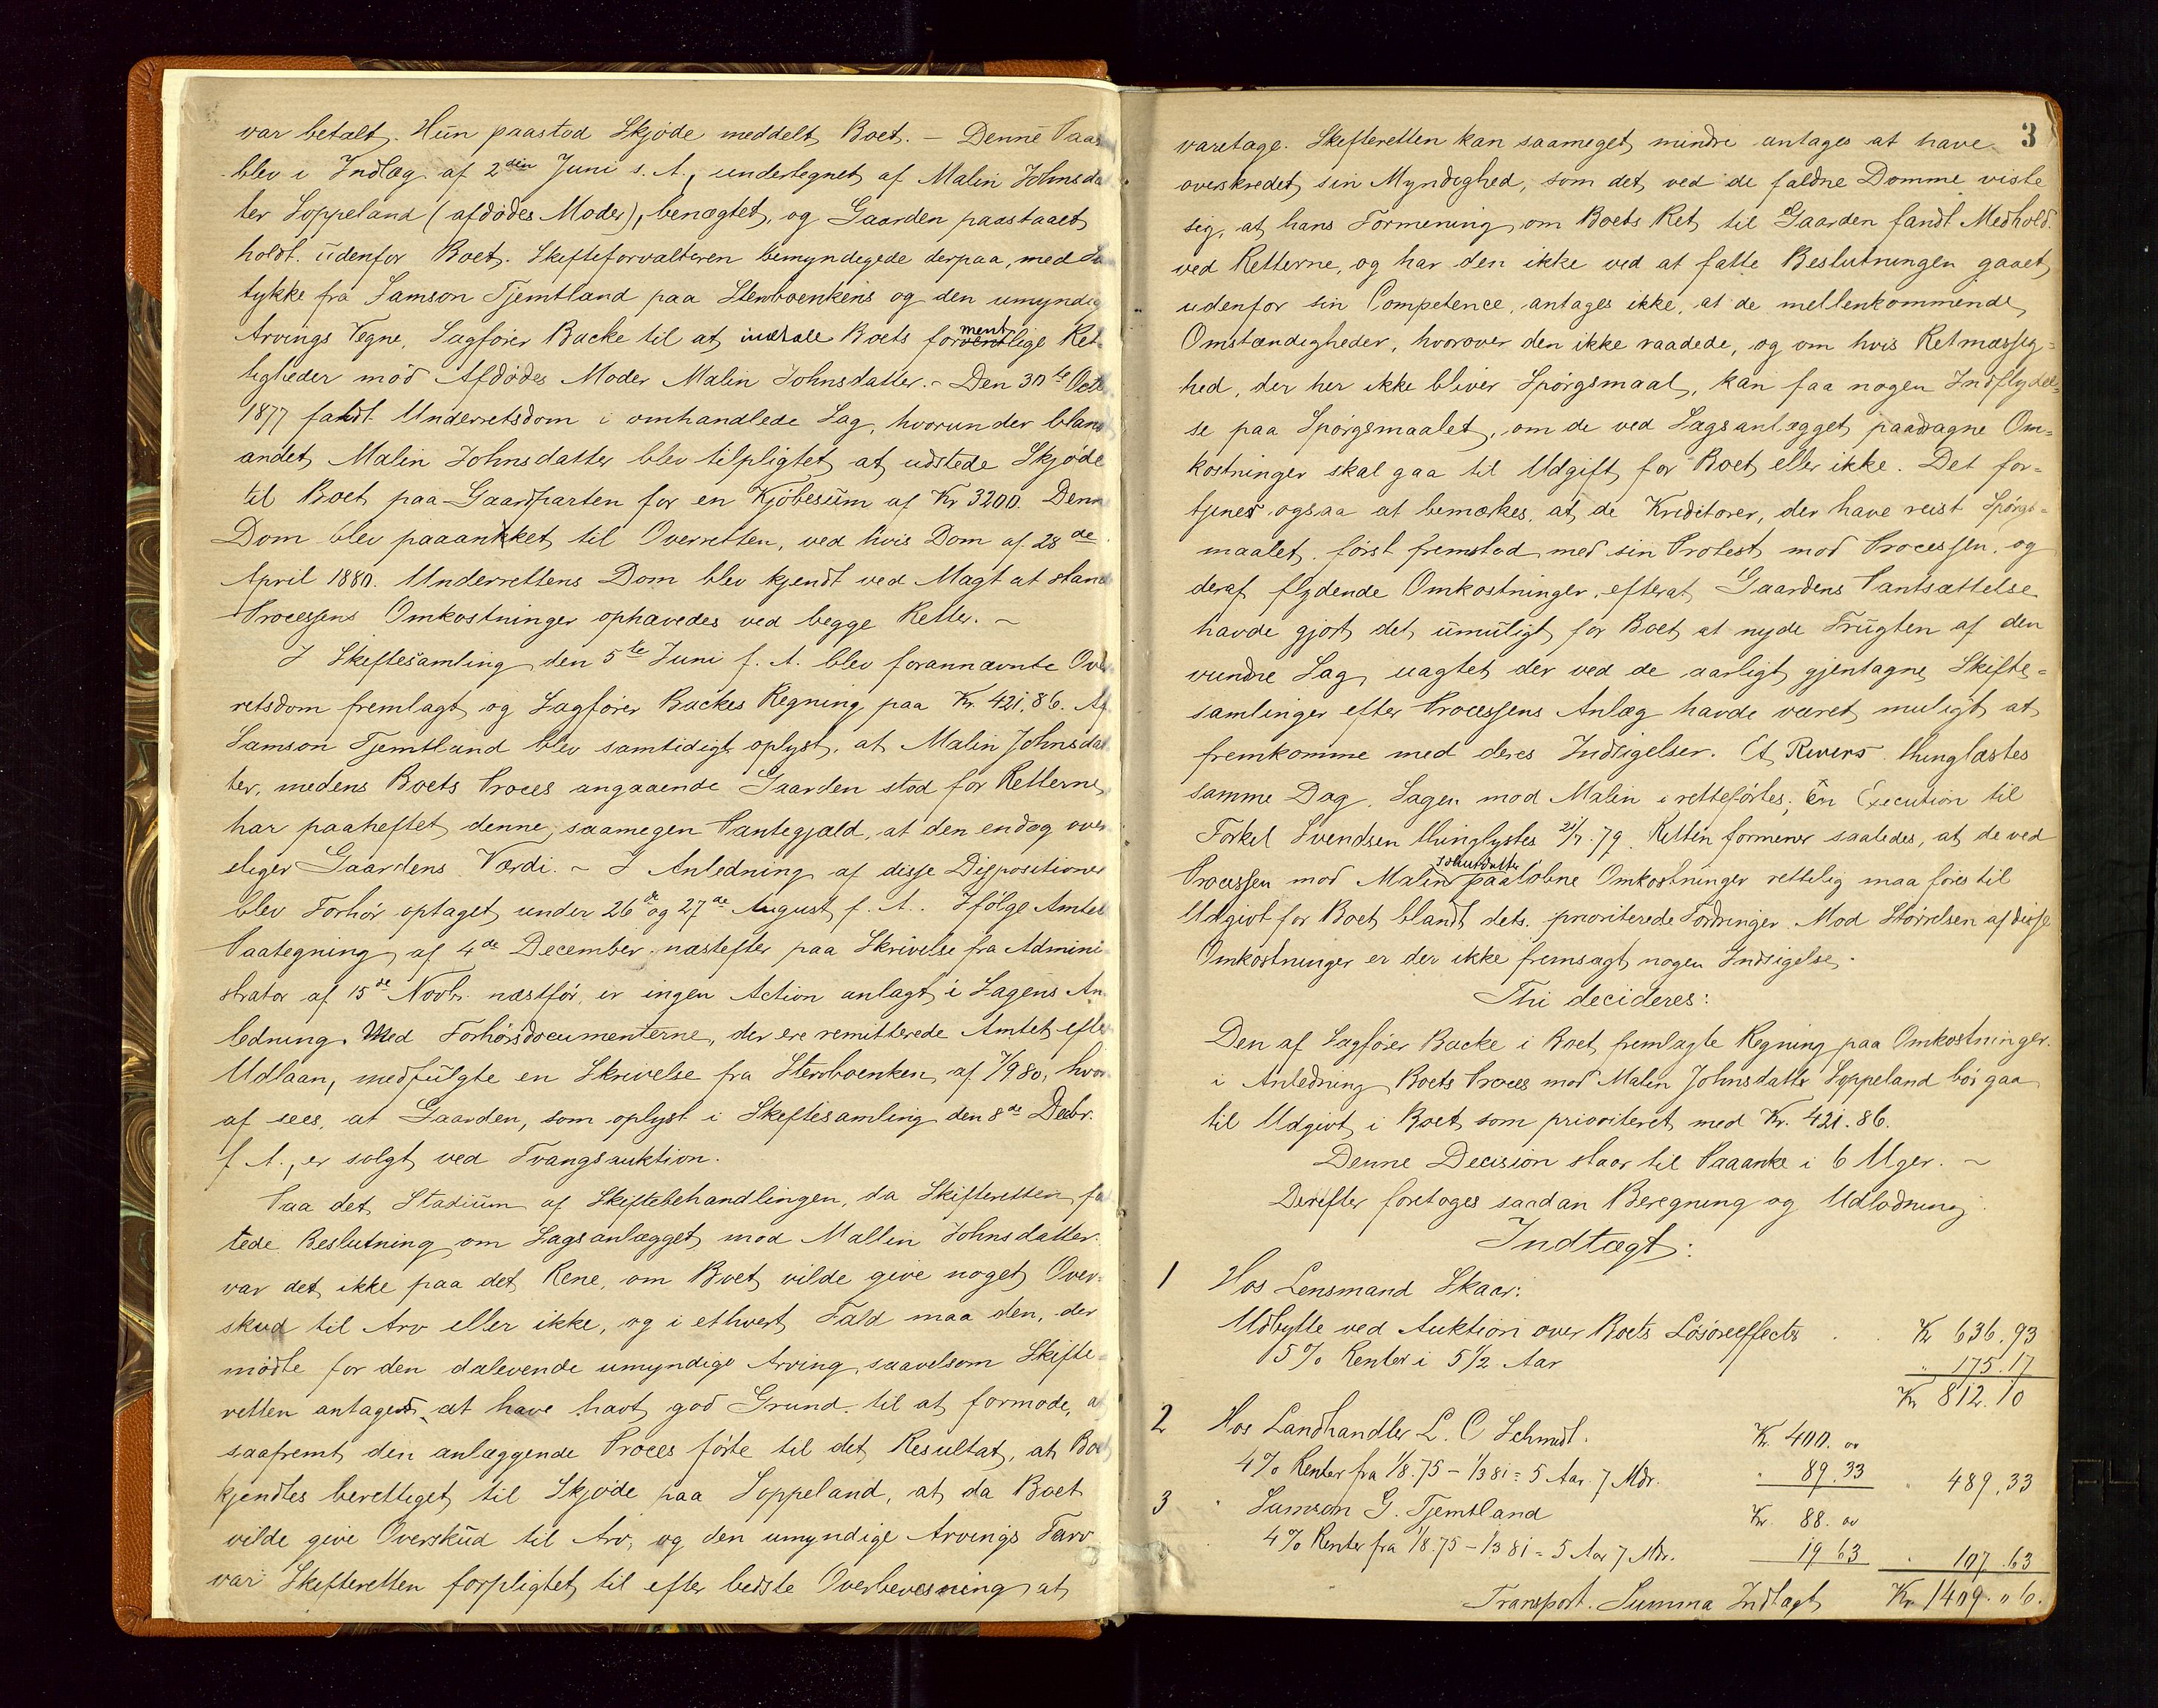 var betalt. Hun paastod Skjøde meddelt Boet. — Denne Paas
blev i Indlæg af 2den Juni s. A., undertegnet af Malin Johnsdat
ter Soppeland (afdødes Moder), benægtet, og Gaarden paastaaet
holdt udenfor Boet. Skifteforvalteren bemyndigede derpaa, med Sam
tykke fra Samson Tjemtland paa Sterboenkens og den umyndig
Arvings Vegne, Sagfører Backe til at indtale Boets formentlige Ret-
tigheder mod Afdødes Moder Malin Johnsdatter. – Den 30te Octb
1877 faldt Underretsdom i omhandlede Sag, hvorunder bland
andet Malin Johnsdatter blev tilpligtet at udstede Skjøde
til Boet paa Gaardparten for en Kjøbesum af Kr 3200. Denn
Dom blev paaanket til Overretten, ved hvis Dom af 28de
April 1880. Underrettens Dom blev kjendt ved Magt at stand
Processens Omkostninger ophævedes ved begge Retter. –
I Skiftesamling den 5te Juni f. A. blev forannævnte Over
retsdom fremlagt og Sagfører Backes Regning paa Kr. 421.86. Af
Samson Tjemtland blev samtidigt oplyst, at Malin Johnsdat
ter, medens Boets Proces angaaende Gaarden stod for Retterne,
har paaheftet denne, saamegen Pantegjæld, at den endog over
stiger Gaardens Værdi. – I Anledning af disse Dispositioner
blev Forhør optaget under 26de og 27de August f. A. Ifølge Amtets
Paategning af 4de December næstefter paa Skrivelse fra Admini-
strator af 15de Novbr. næstfør, er ingen Action anlagt i Sagens An-
ledning. Med Forhørsdocumenterne, der ere remitterede Amtet efter
Udlaan, medfulgte en Skrivelse fra Sterboenken af 7/9 80, hvor
af sees, at Gaarden, som oplyst i Skiftesamling den 8de Decbr.
f. A., er solgt ved Tvangsauktion.
Paa det Stadium af Skiftebehandlingen, da Skifteretten fat
tede Beslutning om Sagsanlægget mod Mallin Johnsdatter
var det ikke paa det Rene, om Boet vilde give noget Over-
skud til Arv eller ikke, og i ethvert Fald maa den, der
mødte for den dalevende umyndige Arving, saavelsom Skifte-
retten antages at have havt god Grund til at formode, at
saafremt den anlæggende Proces førte til det Resultat, at Boet
kjendtes berettiget til Skjøde paa Soppeland, at da Boet
vilde give Overskud til Arv, og den umyndige Arvings Tarv
var Skifteretten forpligtet til efter bedste Overbevisning at
3
varetage. Skifteretten kan saameget mindre antages at have
overskredet sin Myndighed, som det ved de faldne Domme viste
sig, at hans Formening om Boets Ret til Gaarden fandt Medhold.
ved Retterne, og har den ikke ved at fatte Beslutningen gaaet
udenfor sin Competence, antages ikke, at de mellenkommende
Omstændigheder, hvorover den ikke raadede, og om hvis Retmæssig-
hed, der her ikke bliver Spørgsmaal, kan faa nogen Indflydel-
se paa Spørgsmaalet, om de ved Sagsanlægget paadragne Om-
kostninger skal gaa til Udgift for Boet eller ikke. Det for-
tjener ogsaa at bemærkes, at de Kreditorer, der have reist Spørgs-
maalet, først fremstod med sin Protest mod Processen og
deraf flydende Omkostninger, efterat Gaardens Pantsættelse
havde gjort det umuligt for Boet at nyde Frugten af den
vundne Sag, uagtet der ved de aarligt gjentagne Skifte-
samlinger efter Processens Anlæg havde været muligt at
fremkomme med deres Indsigelser. Et Revers thinglæstes
samme Dag, Sagen mod Malin i retteførtes, En Execution til
Torkel Svendsen thinglystes 21/7. 79. Retten formener saaledes, at de ved
Processen mod Malin Johnsdatter paaløbne Omkostninger rettelig maa føres til
Udgivt for Boet blandt dets prioriterede Fordringer. Mod Størrelsen af disse
Omkostninger er der ikke fremsagt nogen Indsigelse.
Thi decideres:
Den af Sagfører Backe i Boet fremlagte Regning paa Omkostninger.
i Anledning Boets Proces mod Malin Johnsdatter Soppeland bør gaa
til Udgivt i Boet som prioriteret med Kr. 421.86.
Denne Decision staar til Paaanke i 6 Uger. –
Derefter foretoges saadan Beregning og Udlodning:
Indtægt:
1 Hos Lensmand Skaar:
Udbytte ved Auktion over Boets Løsøreeffecter . . Kr 636.93
5% Renter i 5 1/2 Aar " 175.17
Kr 812.10
2 Hos Landhandler L. C Schmidt. Kr. 400. oo
4% Renter fra 1/8.75 – 1/3 81 = 5 Aar 7 Mdr. " 89.33 " 489.33
3 " Samson G. Tjemtland Kr. 88. oo
4% Renter fra 1/8.75 – 1/3 81 = 5 Aar 7 Mdr. 19 63 " 107.63
Transport. Summa Indtægt Kr 1409. o6.